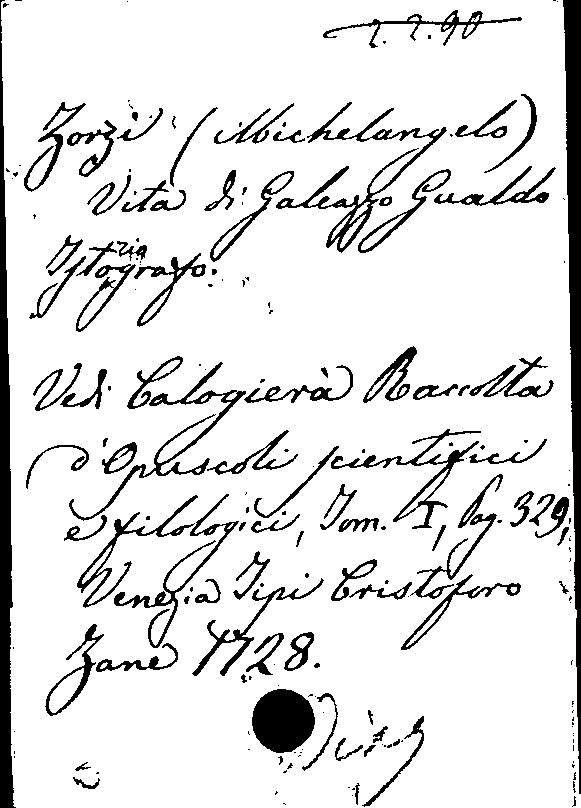 2.2.90
Zorzi (Michelangelo)
Vita di Galeazzo Gualdo
Istoriografo.
Vedi Calogierà Raccolta
d'Opuscoli scientifici
e filologici, Tom. I, Pag. 329,
Venezia Tipi Cristoforo
Zane 1728.